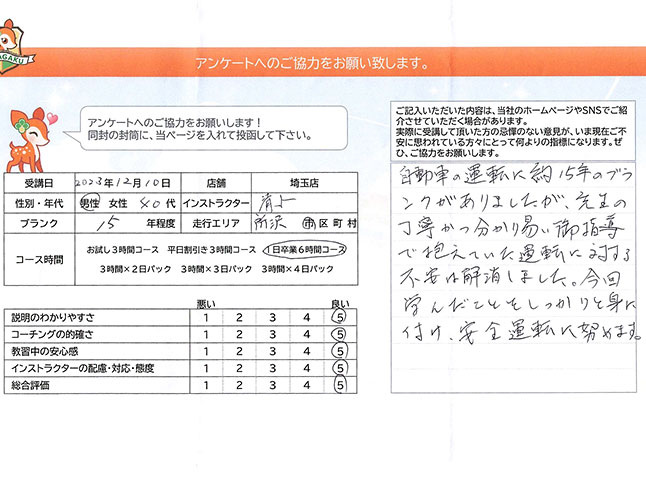 アンケートへのご協力をお願い致します。
アンケートへのご協力をお願いします！
同封の封筒に、当ページを入れて投函して下さい。
受講日 2023年12月10日 店舗 埼玉店
性別・年代 男性 女性 40代 インストラクター
ブランク 15 年程度 走行エリア 所沢 市区町村
コース時間
お試し3時間コース 平日割引き3時間コース 1日卒業6時間コース
3時間×2日パック 3時間×3日パック 3時間×4日パック
悪い 良い
説明のわかりやすさ 1 2 3 4 5
コーチングの的確さ 1 2 3 4 5
教習中の安心感 1 2 3 4 5
インストラクターの配慮・対応・態度 1 2 3 4 5
総合評価 1 2 3 4 5
ご記入いただいた内容は、当社のホームページやSNSでご紹
介させていただく場合があります。
実際に受講して頂いた方の忌憚のない意見が、いま現在ご不
安に思われている方々にとって何よりの指標になります。ぜ
ひ、ご協力をお願いします。
自動車の運転に約15年のブラ
ンクがありましたが、先生の
丁寧かつ分かり易い御指導
で抱えていた運転に対する
不安は解消しました。今回
学んだことをしっかりと身に
付け、安全運転に努めます。